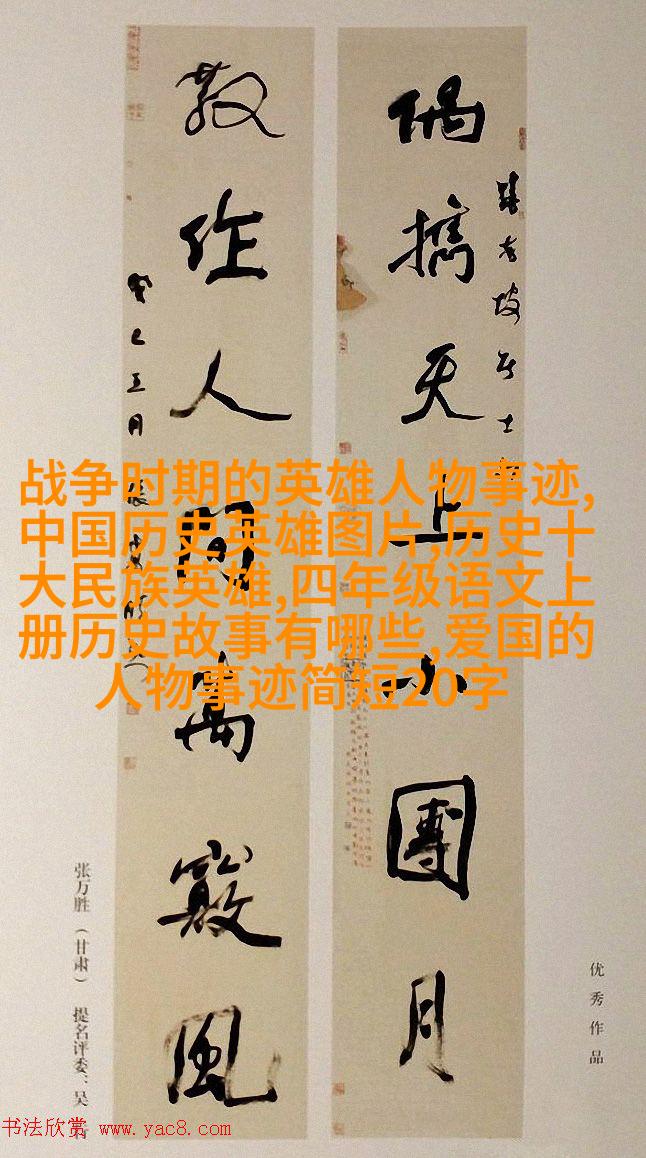 偶擕天上小團月
散作人間萬竅風
癸巳
战争时期的英雄人物事迹,
中国历史英雄图片,历史十
大民族英雄,四年级语文上
册历史故事有哪些,爱国的
人物事迹简短20字
优秀作品
张万胜（甘肃） 提名评委：吴
书法欣赏 www.yac8.com